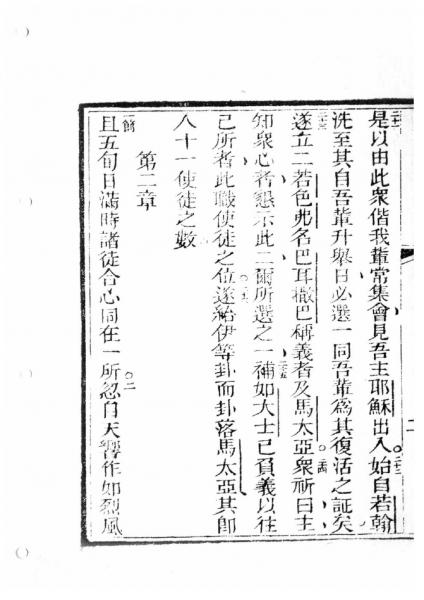 是以由此衆偕我輩常集會見吾主耶穌出入始自若翰
洗至其自吾輩升舉日必選一同吾輩為其復活之証矣
遂立二若色弗名巴耳撒巴稱義者及馬太亞衆祈曰主
知衆心者懇示此二爾所選之一補如大士已負義以往
己所者此職使徒之位遂給伊等卦而卦落馬太亞其即
入十一使徒之數
第二章
一節 且五旬日滿時諸徒合心同在一所忽自天響作如烈風